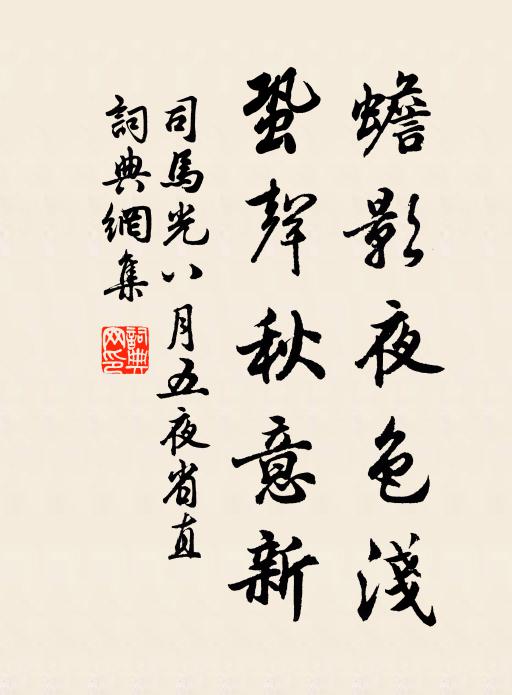 蟾影夜色淺
蛩聲秋意新
司馬光八月五夜省直
詞典網集
詞典網印